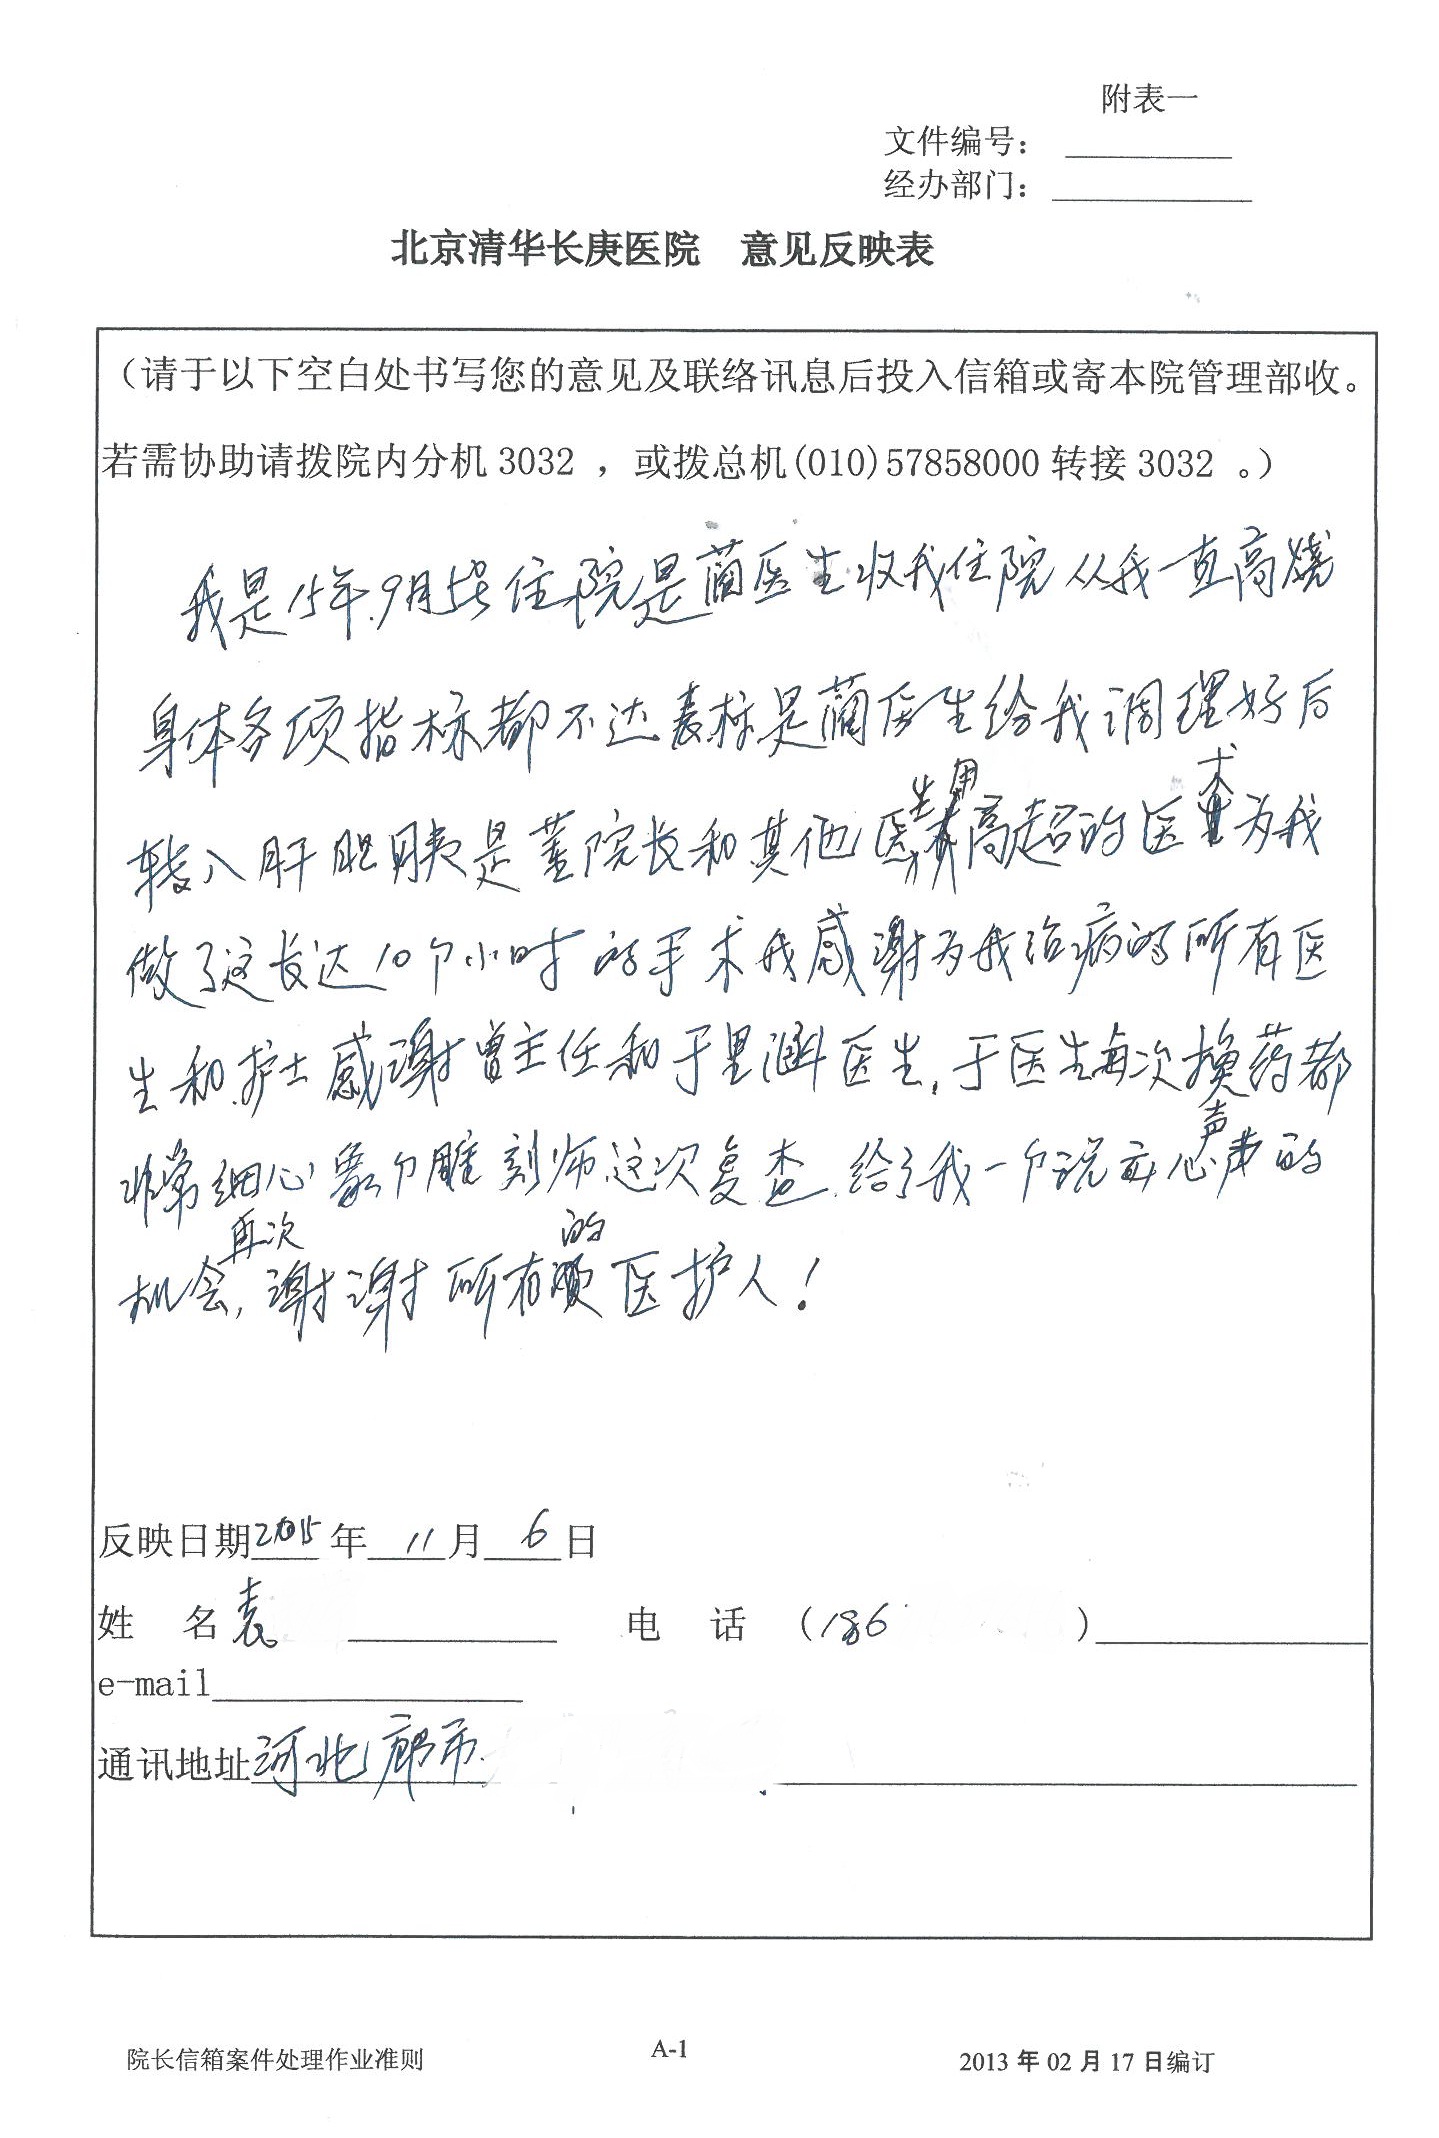 附表一
文件编号：
经办部门：
北京清华长庚医院 意见反映表
（请于以下空白处书写您的意见及联络讯息后投入信箱或寄本院管理部收。
若需协助请拨院内分机 3032 ，或拨总机(010)57858000 转接 3032 。）
我是15年.9月 住院是蔺医生收我住院从我一直高烧
身体各项指标都不达 标是蔺医生给我调理好后
转入肝胆胰是董院长和其他医生用高超的医术为我
做了这长达10个小时的手术我感谢为我治病的所有医
生和护士感谢曾主任和于里涵医生，于医生每次换药都
非常细心象个雕刻师这次复查给了我一个说 心声的
机会，再次谢谢所有的医护人！
反映日期2015年 11月 6日
姓 名 袁 电 话 （186 ）
e-mail
通讯地址河北廊市
院长信箱案件处理作业准则 A-1 2013 年 02 月 17 日编订